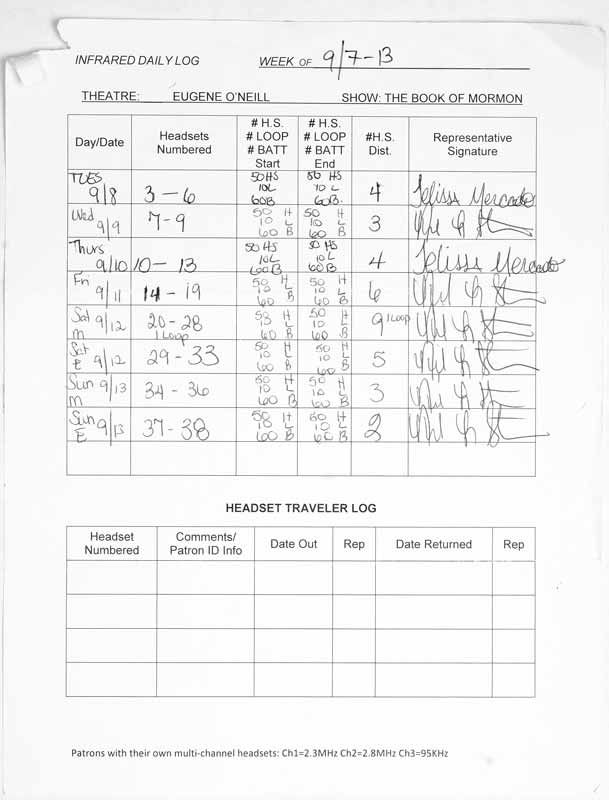 INFRARED DAILY LOG WEEK OF 9/7-13
THEATRE: EUGENE O'NEILL SHOW: THE BOOK OF MORMON
Day/Date Headsets Numbered # H.S. # LOOP # BATT Start # H.S. # LOOP # BATT End #H.S. Dist. Representative Signature
TUES 9/8 3-6 50 HS 10L 60B 50 HS 10 L 60B. 4 Melissa Mercado
Wed 9/9 7-9 50 H 10 L 60 B 50 H 10 L 60 B 3
Thurs 9/10 10-13 50 HS 10L 60B 50 HS 10L 60B 4 Melissa Mercado
Fri 9/11 14-19 50 H 10 L 60 B 50 H 10 L 60 B 6
Sat M 9/12 20-28 1 Loop 58 H 10 L 60 B 50 H 10 L 60 B 9 1 Loop
Sat E 9/12 29-33 50 H 10 L 60 B 50 H 10 L 60 B 5
Sun M 9/13 34-36 50 H 10 L 60 B 50 H 10 L 60 B 3
Sun E 9/13 37-38 50 H 10 L 60 B 50 H 10 L 60 B 2
HEADSET TRAVELER LOG
Headset Numbered Comments/ Patron ID Info Date Out Rep Date Returned Rep
Patrons with their own multi-channel headsets: Ch1=2.3MHz Ch2=2.8MHz Ch3=95KHz